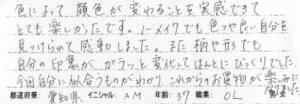 色によって 顔色が変わることを実感できて
とても楽しかったです。ノーメイクでも色つや良い自分を
見つけられて感動しました。また柄や形でも
自分の印象が、ガラッと変化してほんとにびっくりでした。
今回自分に似合うものがわかり これからのお買物が楽しみに
なりました
都道府県: 愛知県 イニシャル: A.M 年齢: 37 職業: OL